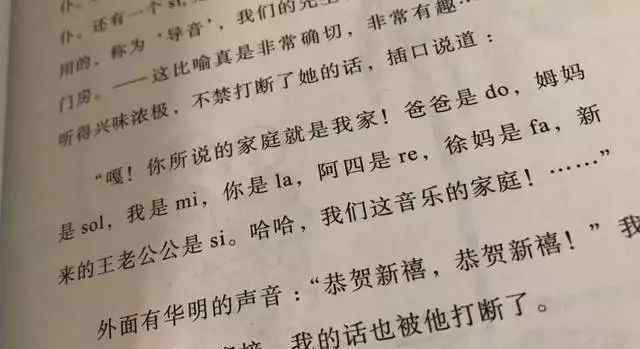 仆。还有一个 si,
用的，称为‘导音’，我们的先生
门房。——这比喻真是非常确切，非常有趣…
听得兴味浓极，不禁打断了她的话，插口说道：
“嘎！你所说的家庭就是我家！爸爸是 do，姆妈
是 sol，我是 mi，你是 la，阿四是 re，徐妈是 fa，新
来的王老公公是 si。哈哈，我们这音乐的家庭！……”
外面有华明的声音：“恭贺新禧，恭贺新禧！”我
我的话也被他打断了。